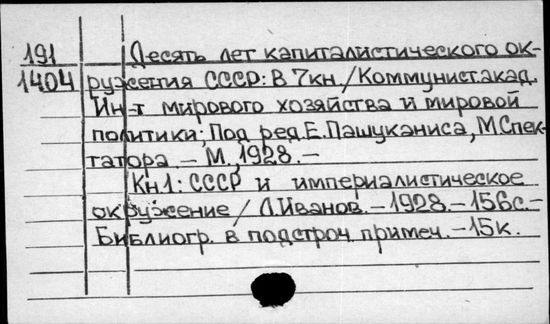 191 Десять лет капиталистического ок-
1404 ружения СССР: В 7кн/Коммунист.акад.
Ин-т мирового хозяйства и мировой
политики; Под ред.Е.Пашуканиса, М.Спек-
татора – М., 1928. –
Кн1: СССР и империалистическое
окружение/Л.Иванов. – 1928. – 156с. –
Библиогр. в подстроч. примеч. – 15к.